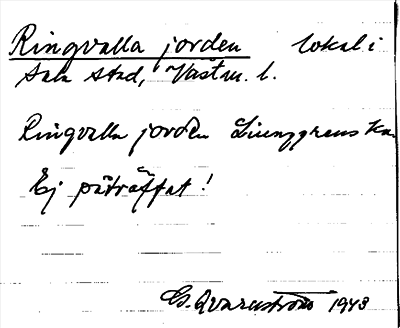 Ringvalla jorden lokal i
Sala stad, Västm. l.
Ringvalla jorden Liunggrens ka
Ej påträffat!
G. Qvarnström 1943